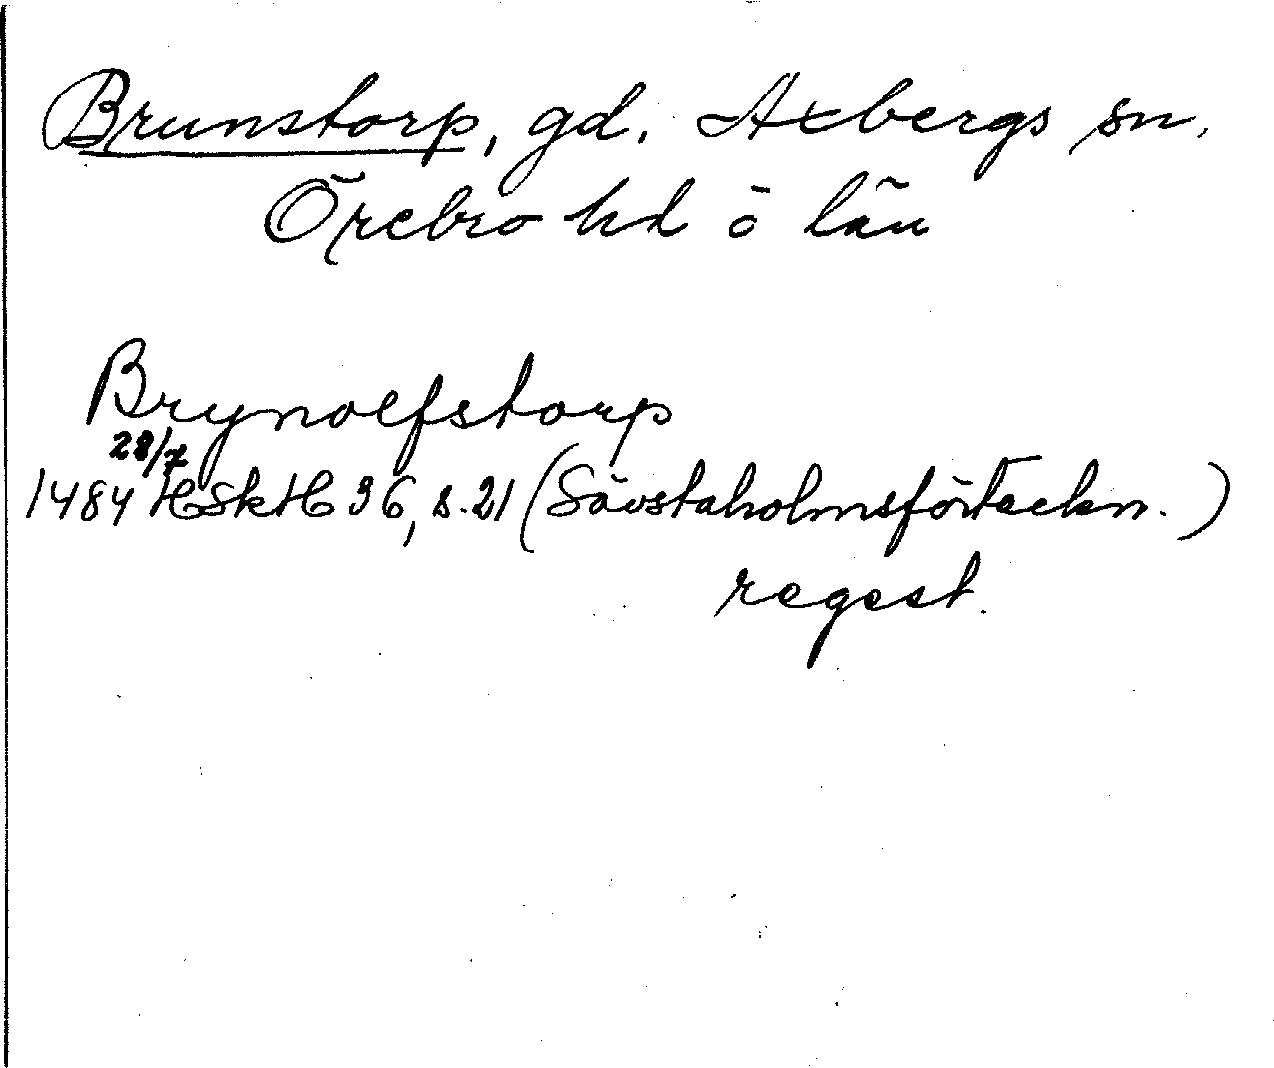 Brunstorp, gd. Axbergs sn.
Örebro hd ö län
Brynolfstorp
28/7
1484 HSkH 36, s. 21 (Sävstaholmsförteckn.)
regest.